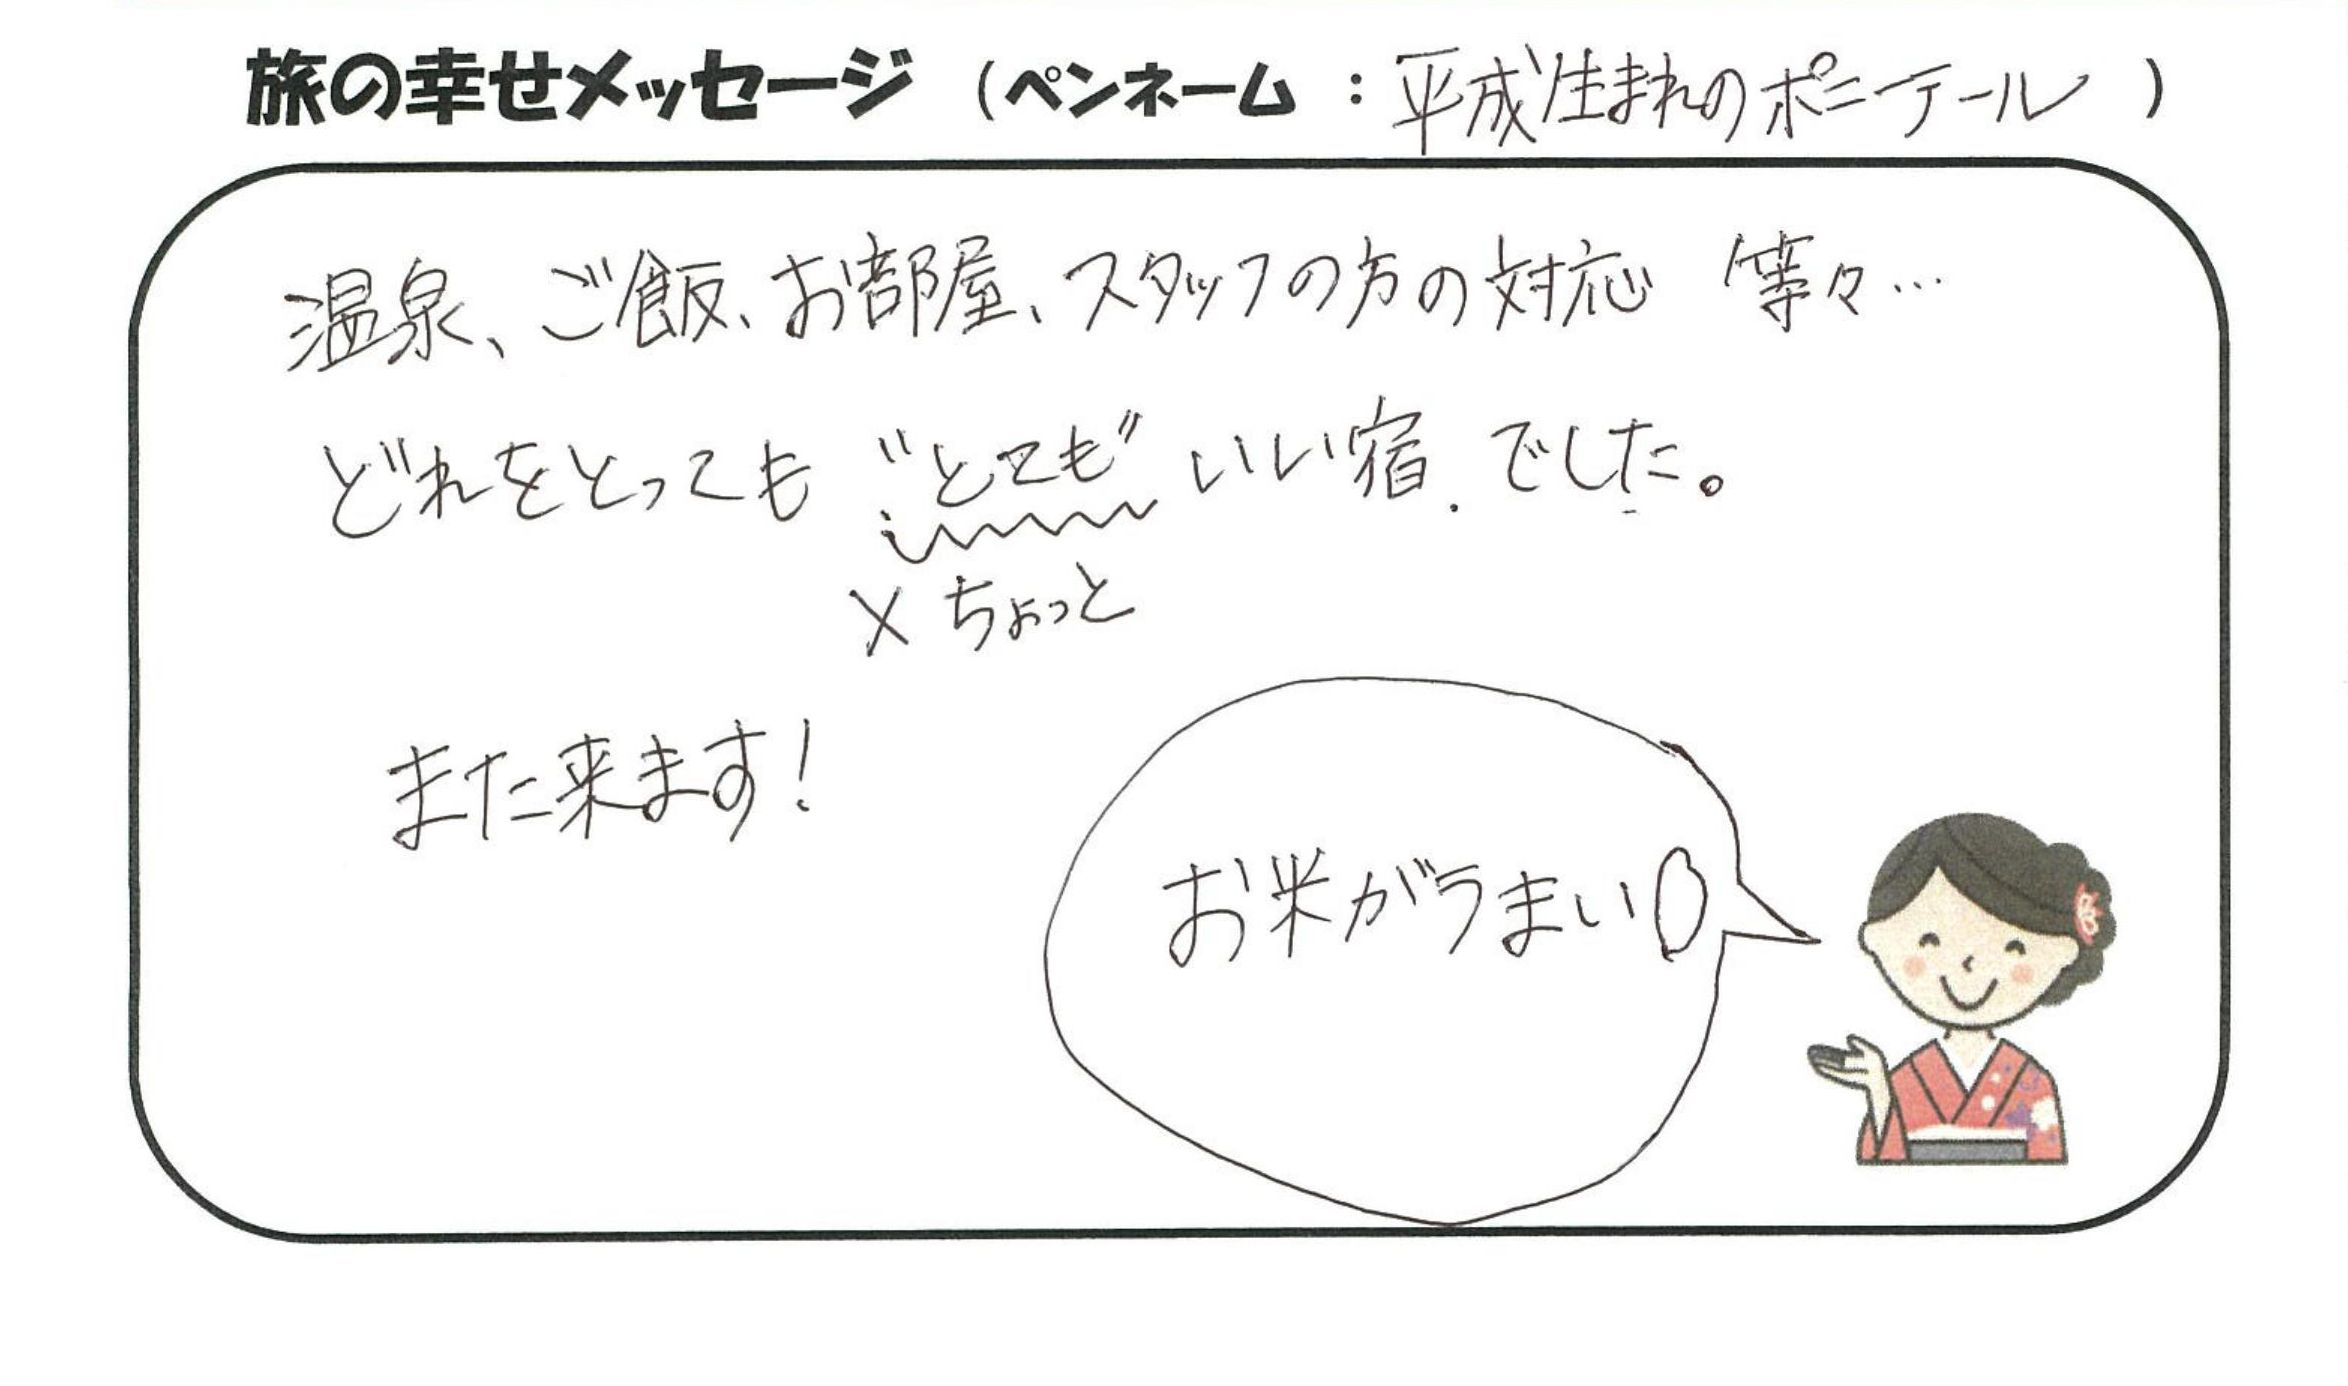 旅の幸せメッセージ (ペンネーム : 平成生まれのポニーテール )
温泉、ご飯、お部屋、スタッフの方の対応 等々…
どれをとっても "とても" いい宿 でした。
× ちょっと
また来ます!
お米がうまい